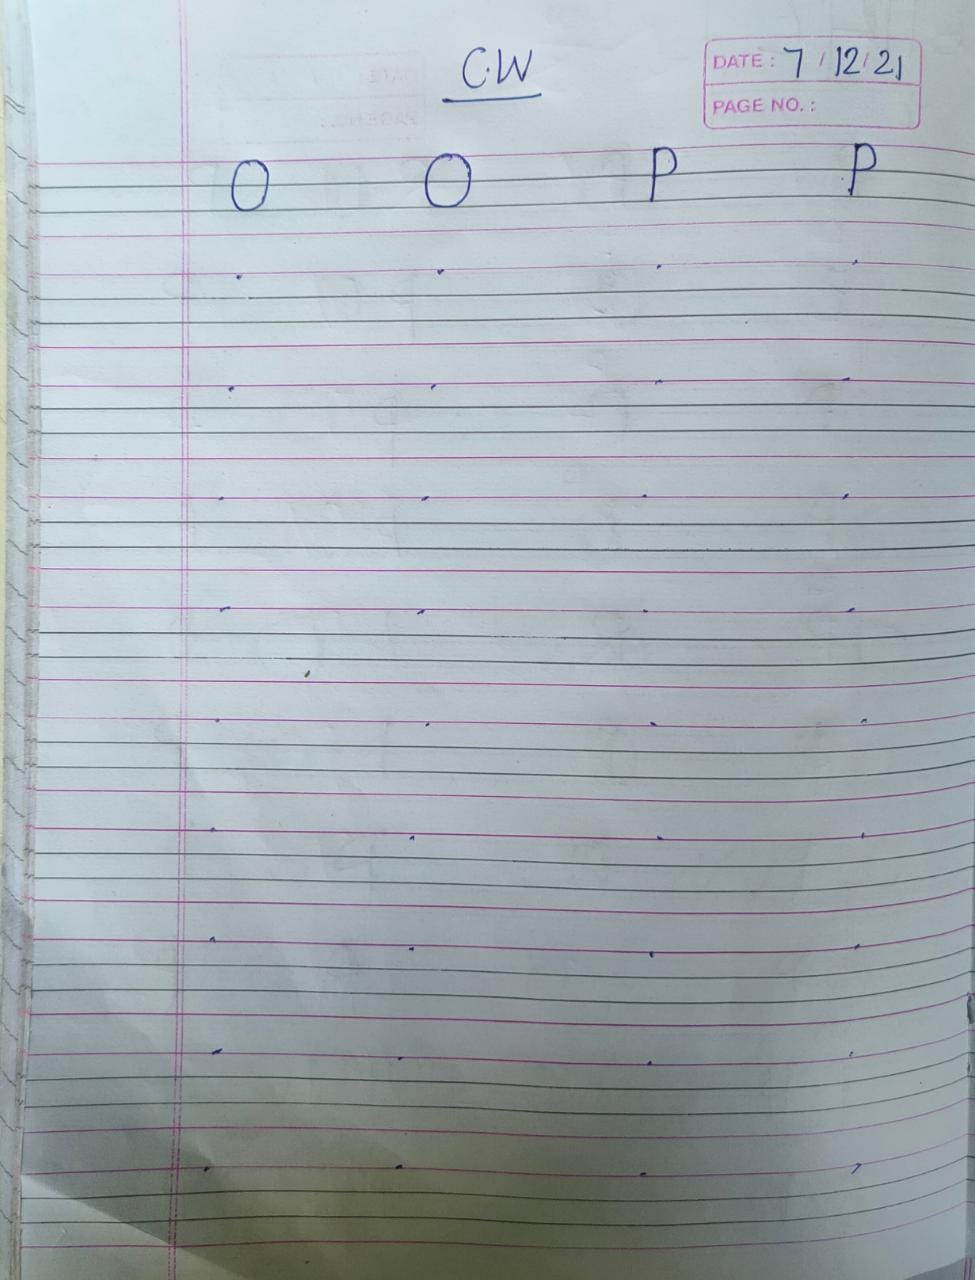 C.W
DATE : 7 / 12 / 21
PAGE NO. :
O O P P